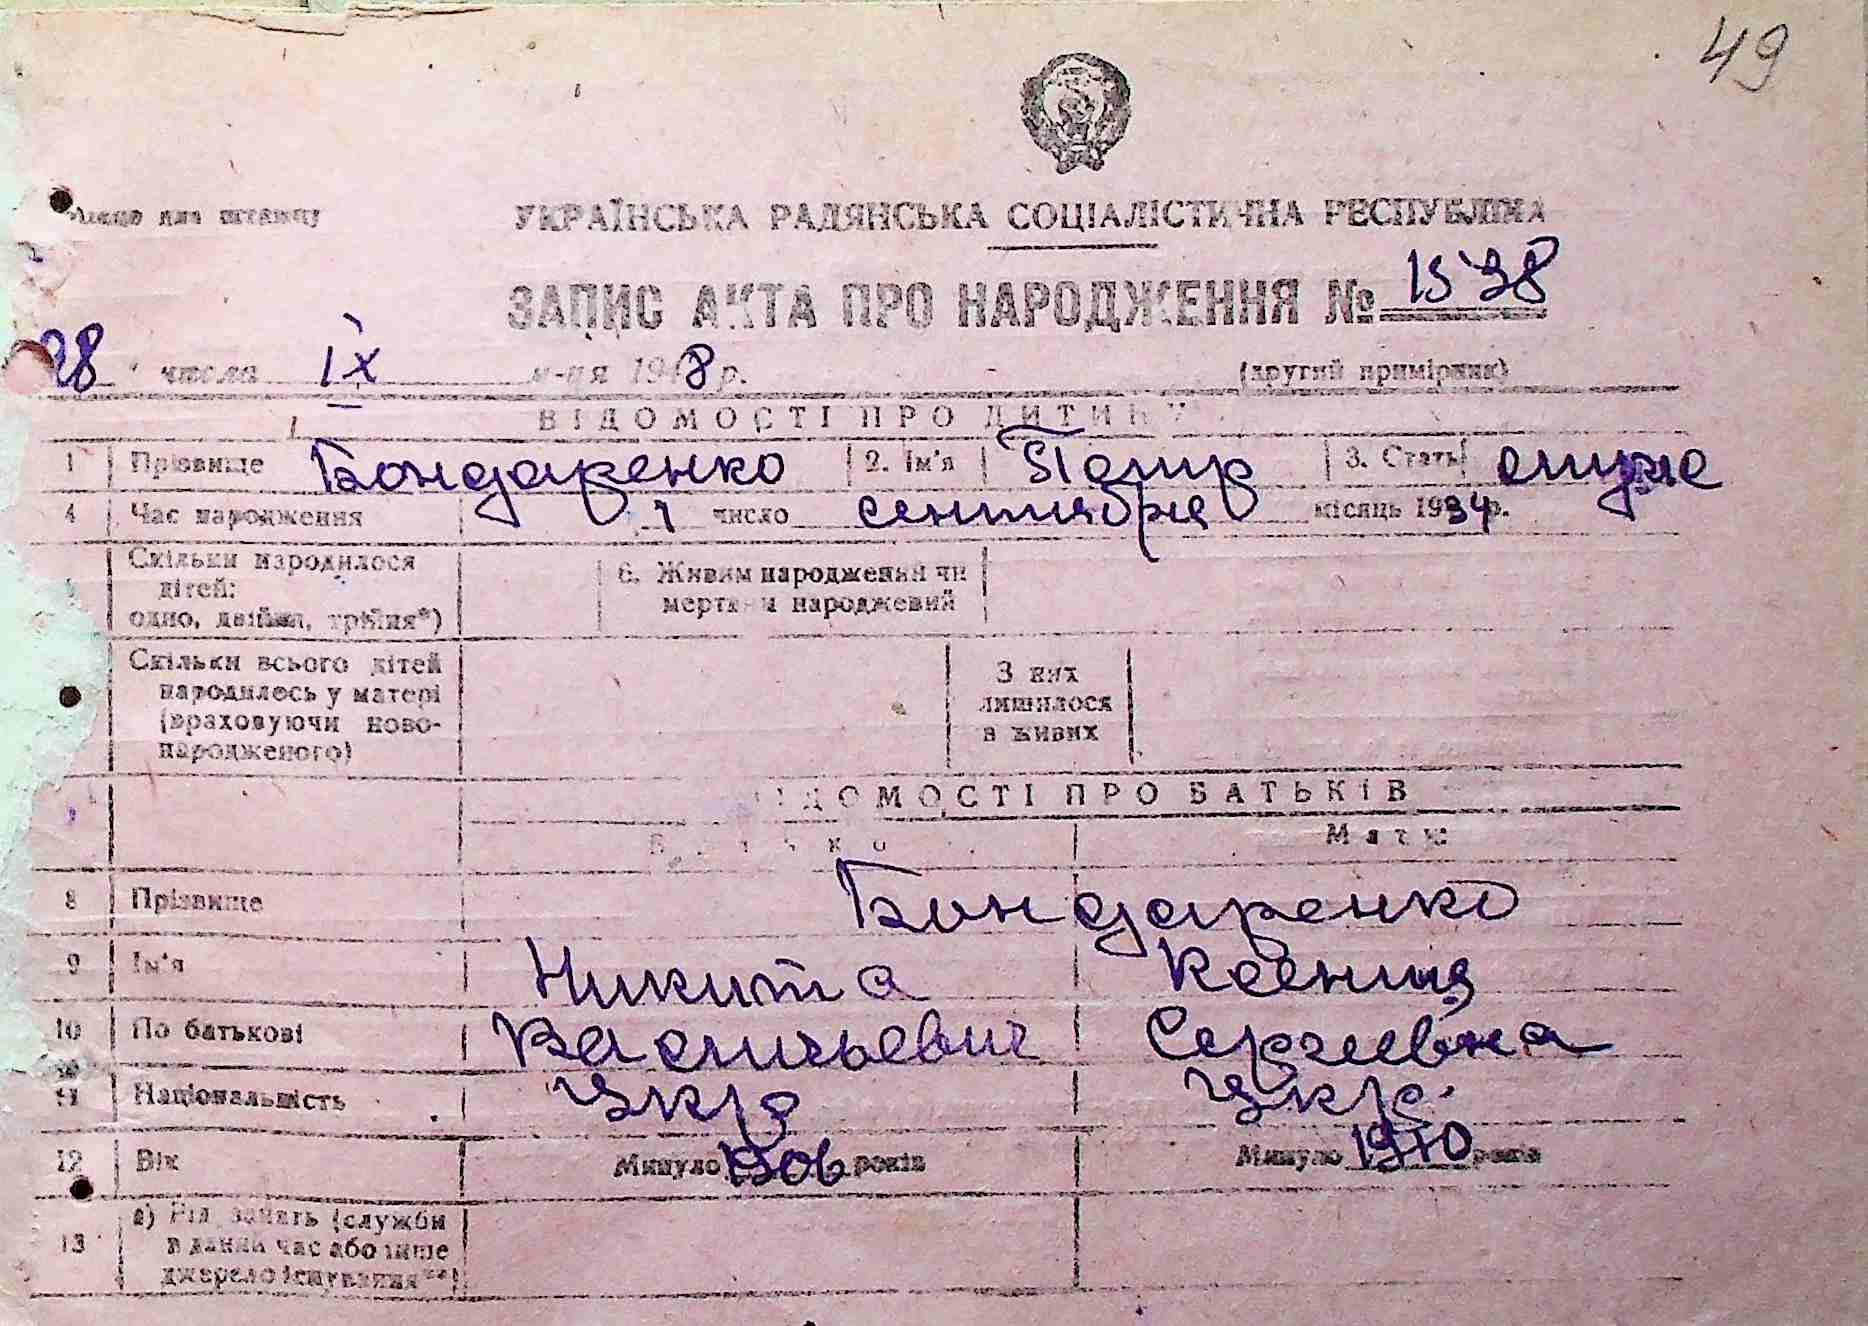 49
Місце для штампу
УКРАЇНСЬКА РАДЯНСЬКА СОЦІАЛІСТИЧНА РЕСПУБЛІКА
ЗАПИС АКТА ПРО НАРОДЖЕННЯ № 1538
28 " числа IX м-ця 1948 р. (другий примірник)
ВІДОМОСТІ ПРО ДИТИНУ
1 Прізвище Бондаренко 2. Ім'я 3. Стать
4 Час народження 1 число сентября місяць 1934 р.
Скільки народилося дітей: одно, двійня, трійня*) 6. Живим народжений чи мертвим народжений
Скільки всього дітей народилось у матері (враховуючи новонародженого) З них лишилося в живих
ВІДОМОСТІ ПРО БАТЬКІВ
Батько Мати
8 Прізвище Бондаренко
9 Ім'я Никита Ксения
10 По батькові Васильевич Сергеевна
11 Національність Укр Укр.
12 Вік Минуло 1906 років Минуло 1910 років
13 а) Рід занять (служби в даний час або інше джерело існування**)